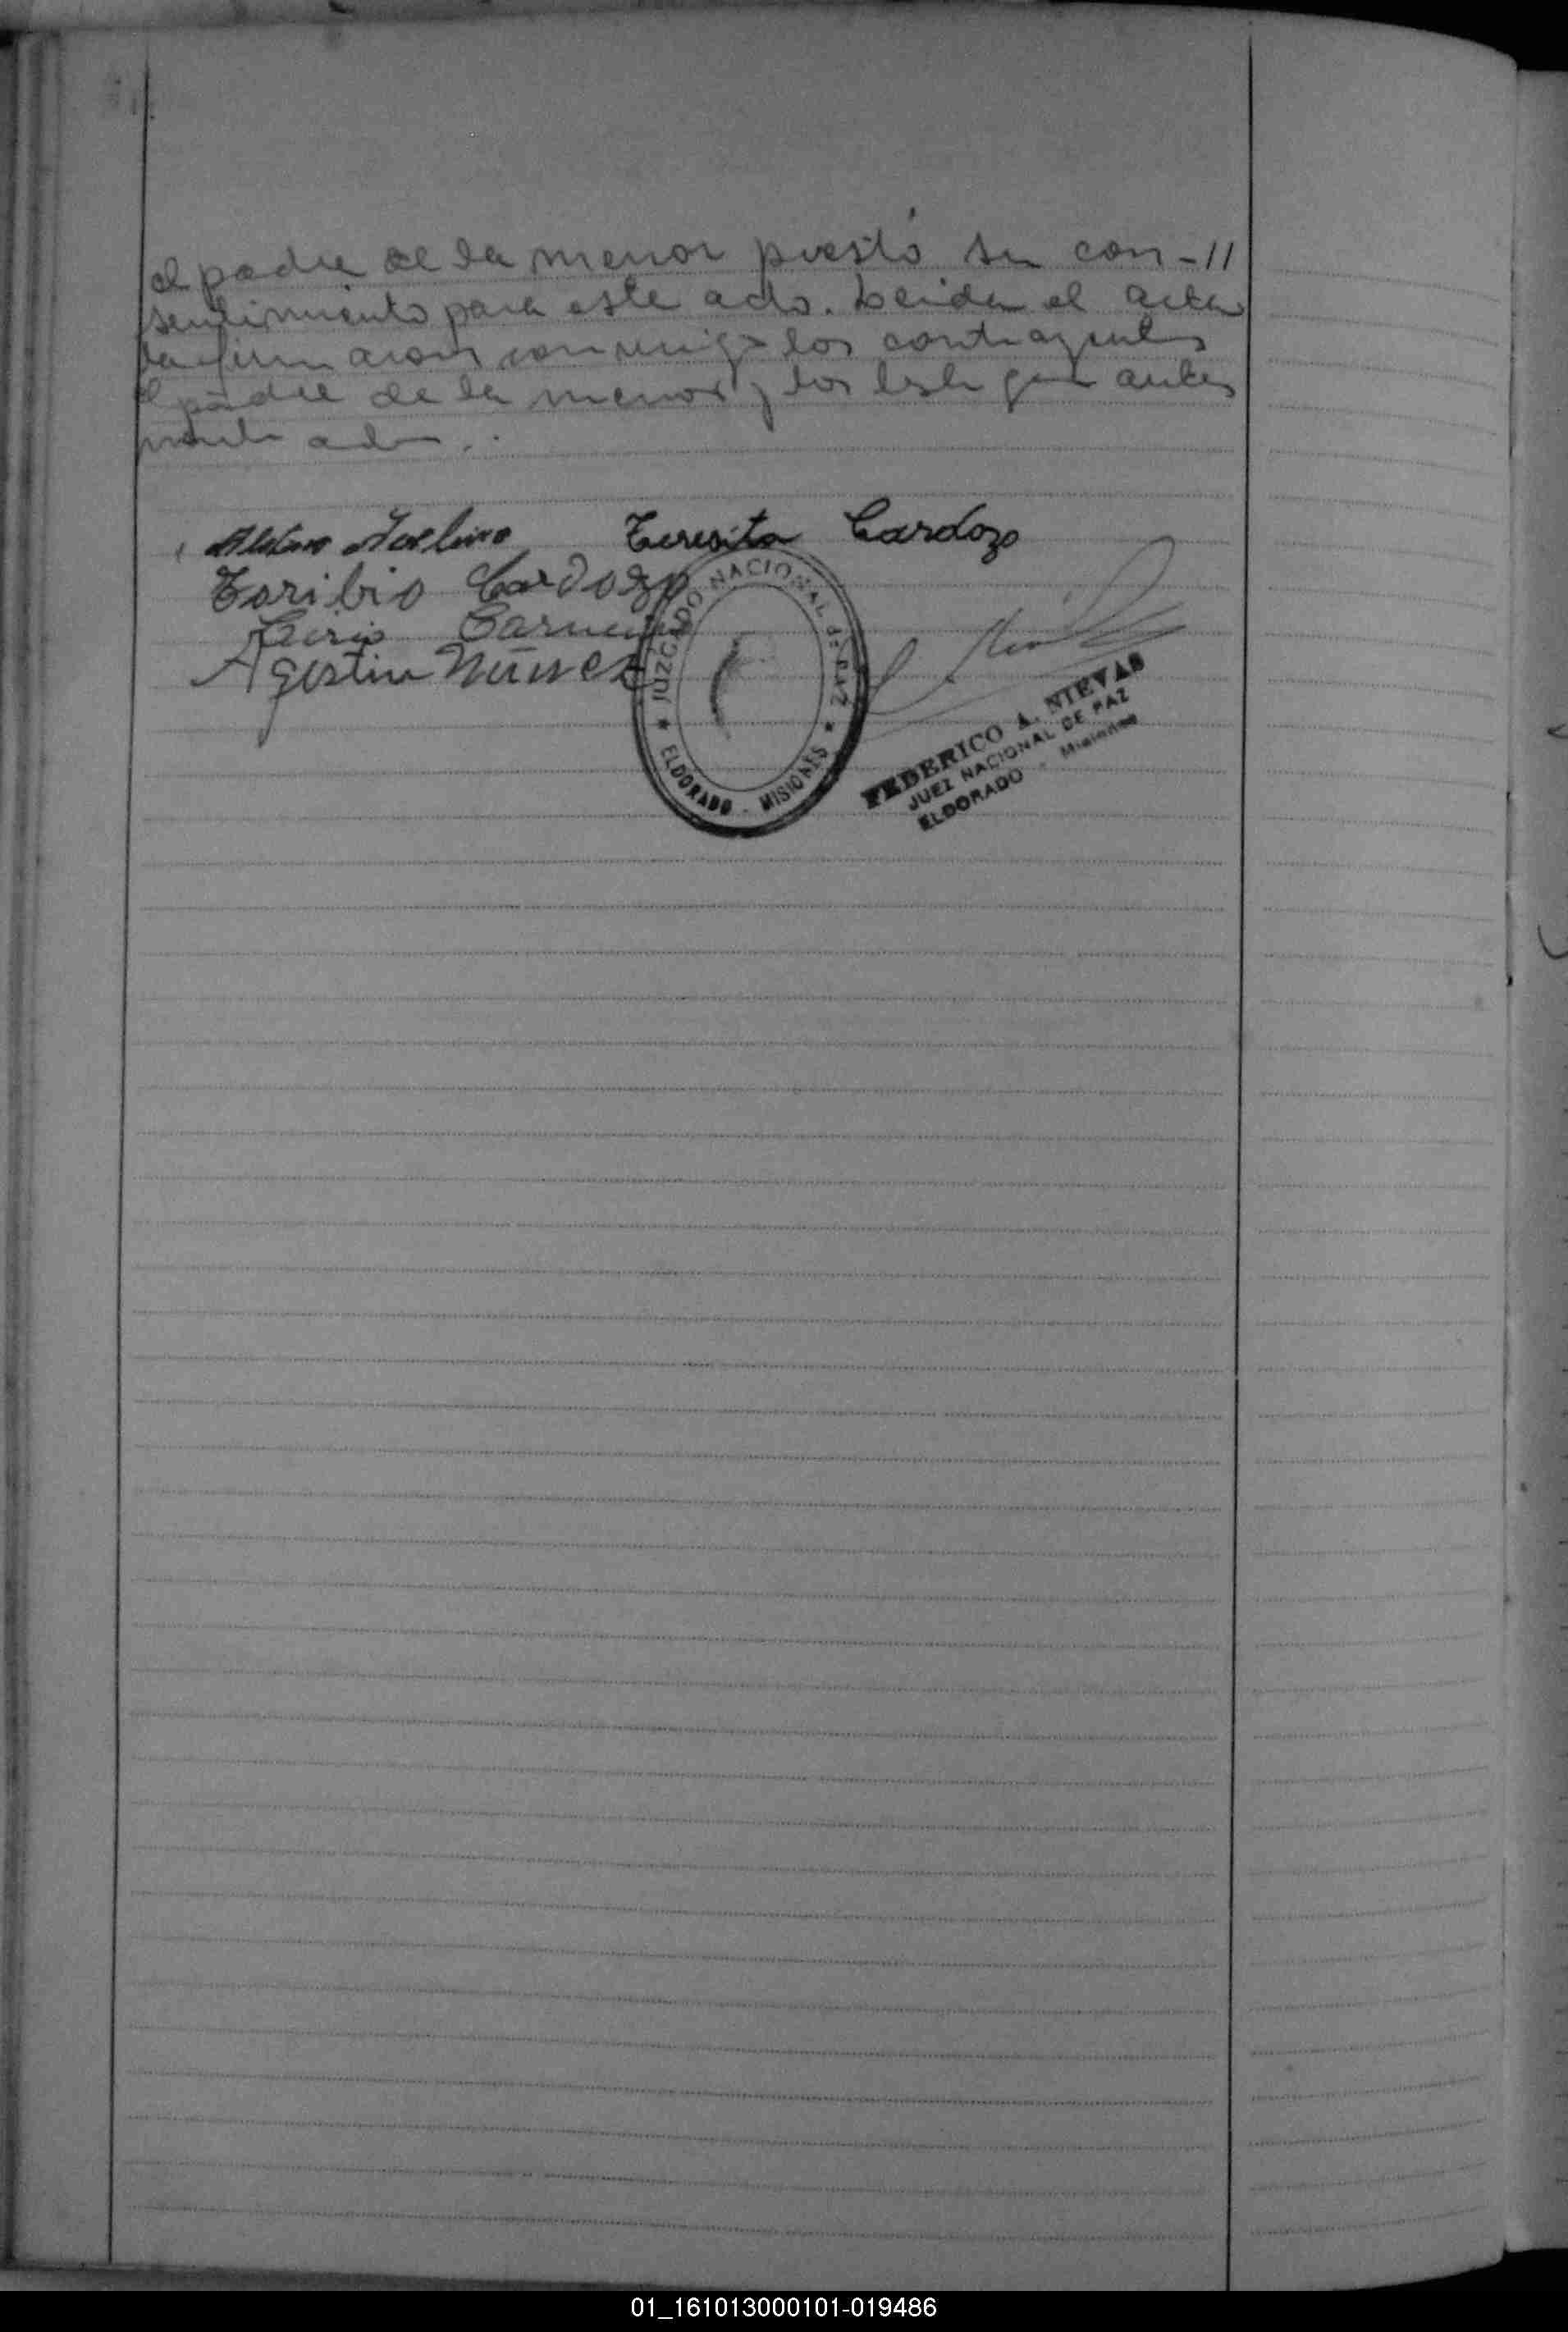 el padre de la menor prestó su con-//
sentimiento para este acto. Leida el acta
la firmaron conmigo los contrayentes
el padre de la menor y los testigos antes
Avelino Teresita Cardozo
Toribio Cardozo
Agostin Núnez
JUZGADO NACIONAL de PAZ
* ELDORADO - MISIONES *
FEDERICO A. NIEVAS
JUEZ NACIONAL DE PAZ
ELDORADO - Misiones
01_161013000101-019486